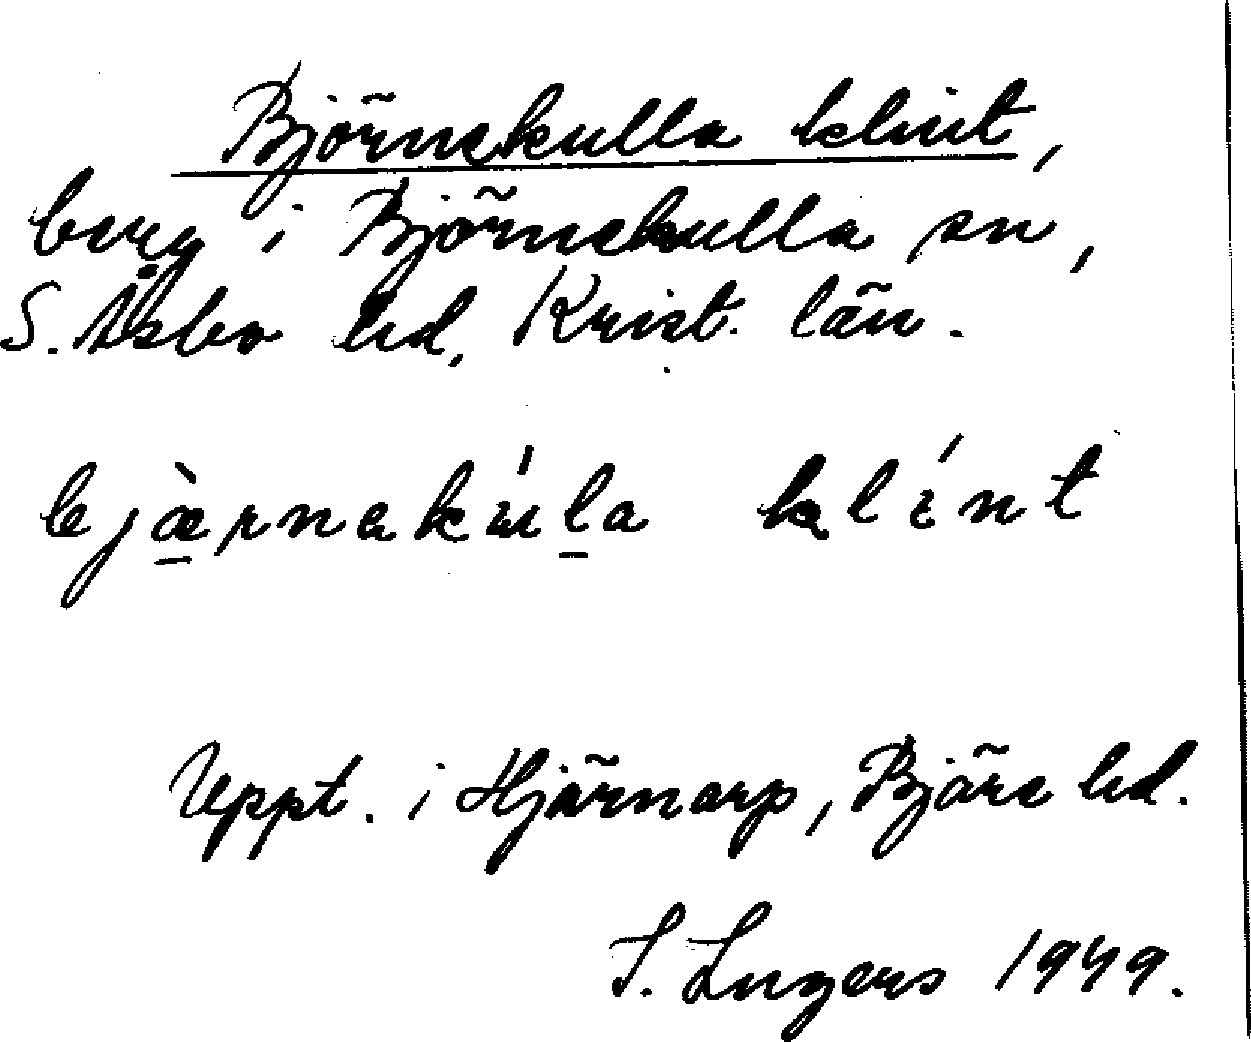 Björnekulla klint,
berg i Björnekulla sn,
S. Åsbo hd, Krist. län.
bjæ̀rnakúla klínt
Uppt. i Hjärnarp, Bjäre hd.
I. Ingers 1949.